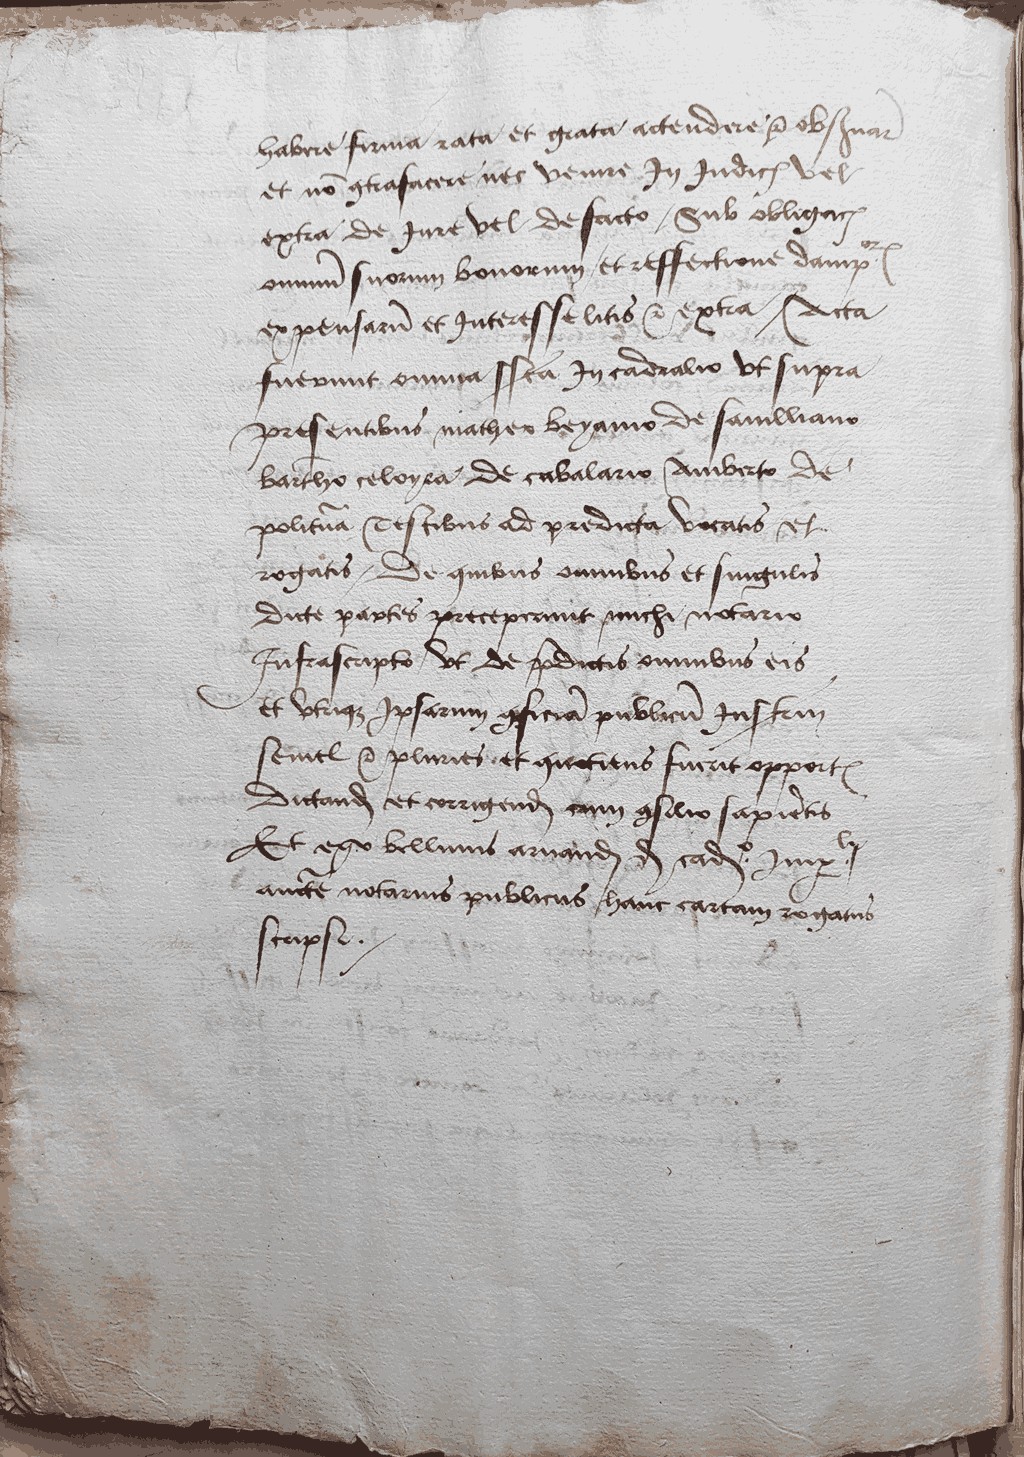 habere firma rata et grata actendere & obs̄uar̄
et nō ꝯtrafacere nec venire In Iudicꝭ vel
extra de Iure vel de facto / Sub obligacꝭ
omniū suorum bonorum / et reffectione dampnorꝭ
expensarū et Interesse litis & extra / Acta
fuerunt omnia ssc̄ta In cadralio vt supra
presentibus matheo beyamo de
bartho celoyra de cabalario Amberto de
Testibus ad predicta vocatis et
rogatis / De quibus omnibus et singulis
dicte partes preceperunt michi notario
Infrascripto vt de p̄dictis omnibus eis
et vtriqꝫ Ipsarum ꝯficiā publicū Instrm̄
semel & pluries et quotiens fuerit opportꝭ
Dictand̄ et corrigend̄ cum ꝯsilio sapiētis
Et ego bellinus arnand̄ d̄ cad̄º Imp̄li
auct̄e notarius publicus hanc cartam rogatus
scripsi . /